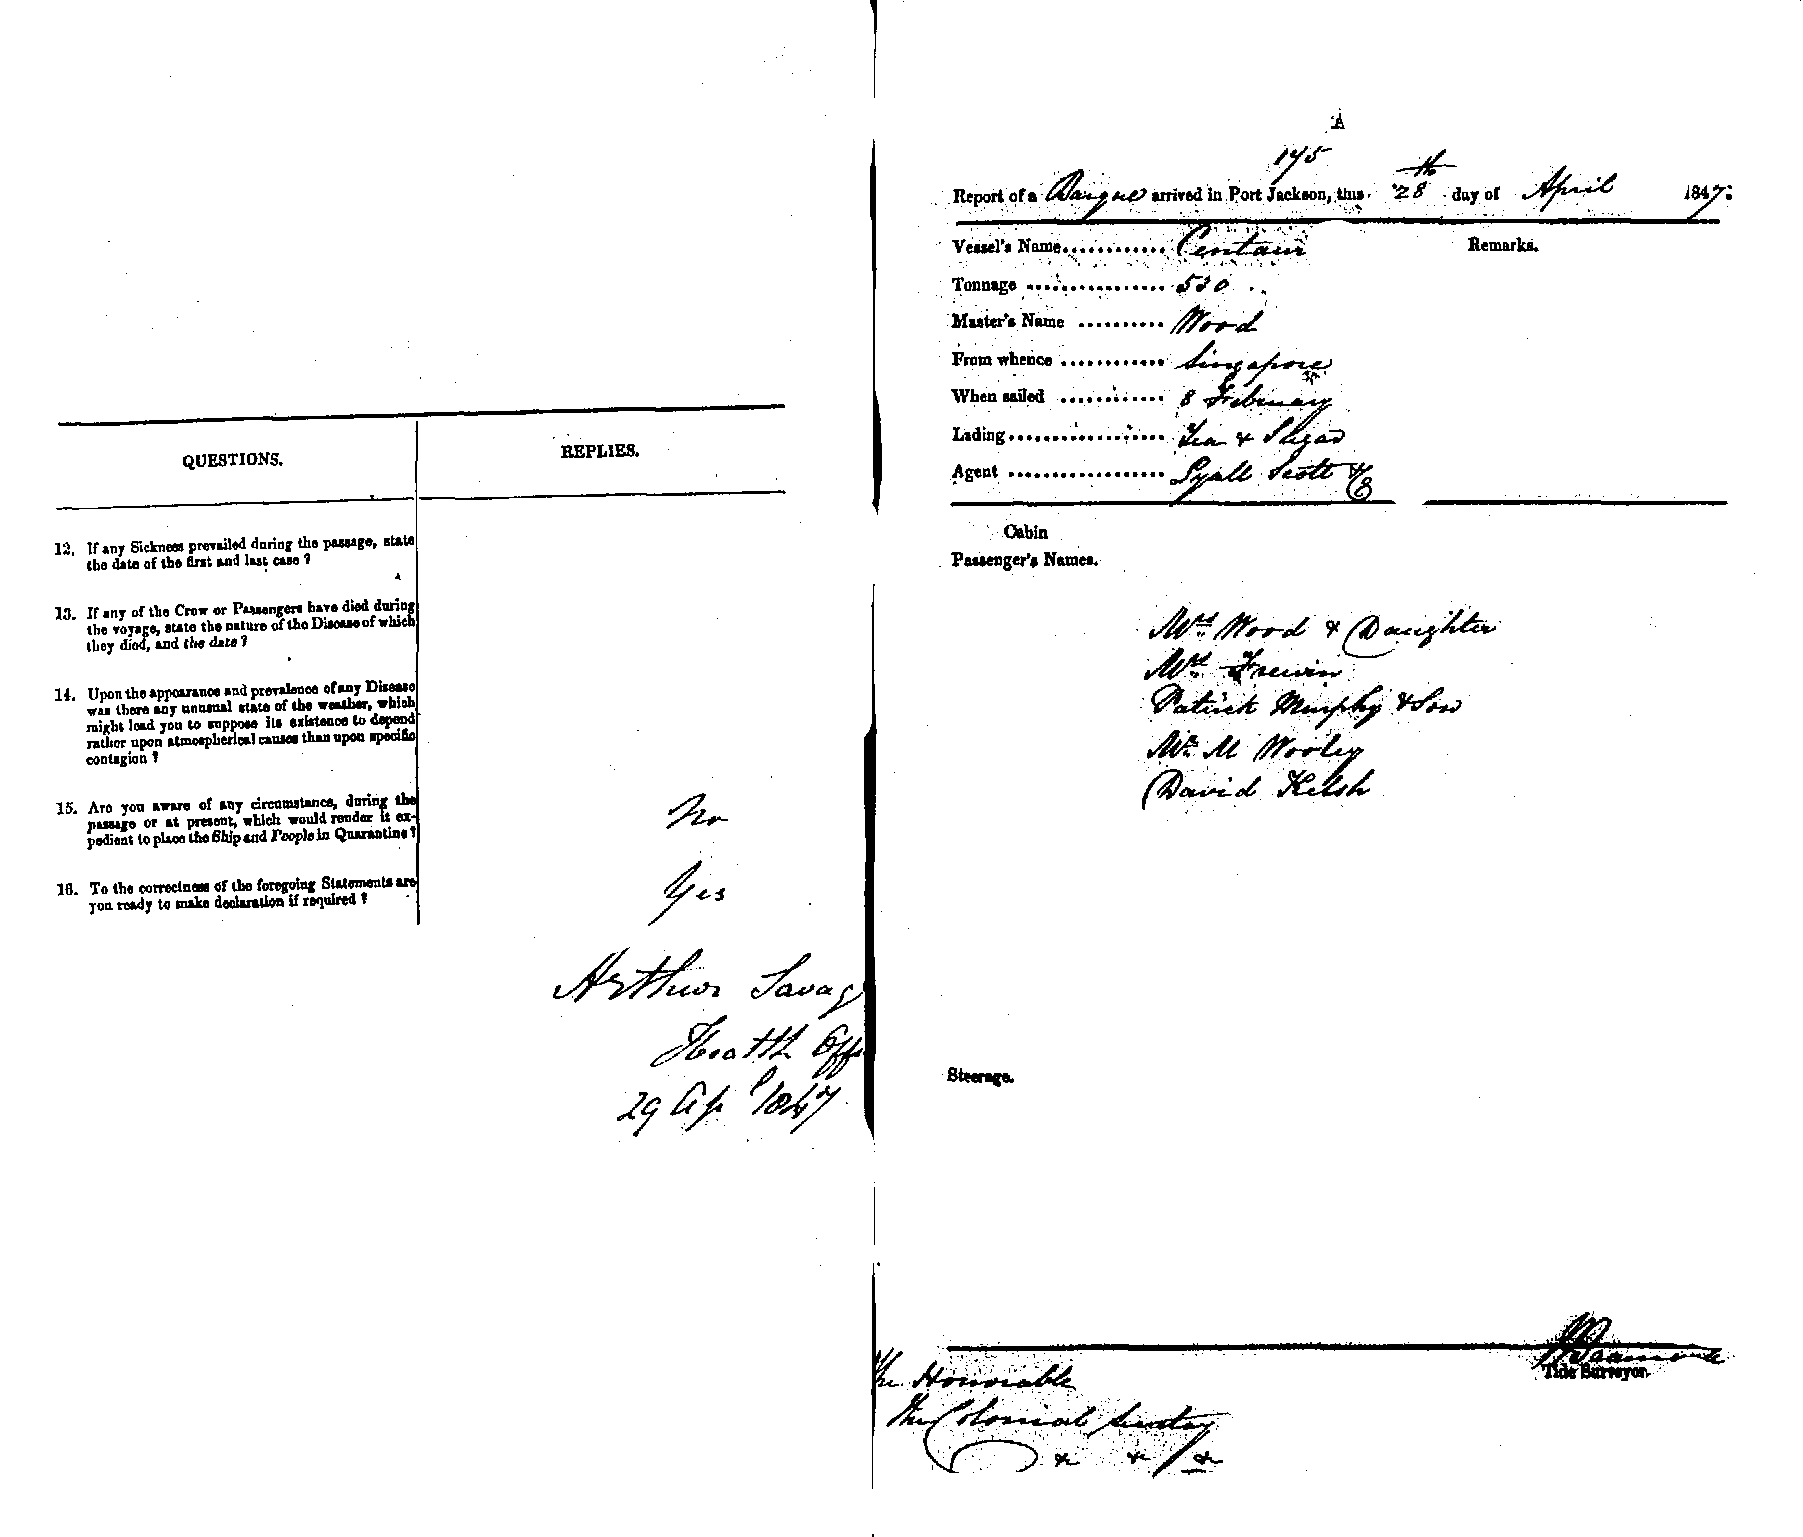 QUESTIONS.
REPLIES.
12. If any Sickness prevailed during the passage, state
the date of the first and last case ?
13. If any of the Crew or Passengers have died during
the voyage, state the nature of the Disease of which
they died, and the date ?
14. Upon the appearance and prevalence of any Disease
was there any unusual state of the weather, which
might lead you to suppose its existence to depend
rather upon atmospherical causes than upon specific
contagion ?
15. Are you aware of any circumstance, during the
passage or at present, which would render it ex-
pedient to place the Ship and People in Quarantine ?
No
16. To the correctness of the foregoing Statements are
you ready to make declaration if required ?
Yes
Arthur Savag
Health Offi
29 Apl 1847
A
175
Report of a Barque arrived in Port Jackson, this 28th day of April 1847:
Vessel's Name............ Centaur
Remarks.
Tonnage ................ 530
Master's Name .......... Wood
From whence ............ Singapore
When sailed ............ 8 February
Lading.................. Tea & Sugar
Agent .................. Lyall Scott & Co
Cabin
Passenger's Names.
Mrs Wood & Daughter
Mrs Frewin
Patrick Murphy & Son
Mr M Wooley
David Kelsh
Steerage.
Tide Surveyor.
The Honorable
The Colonial Secretary
& & &